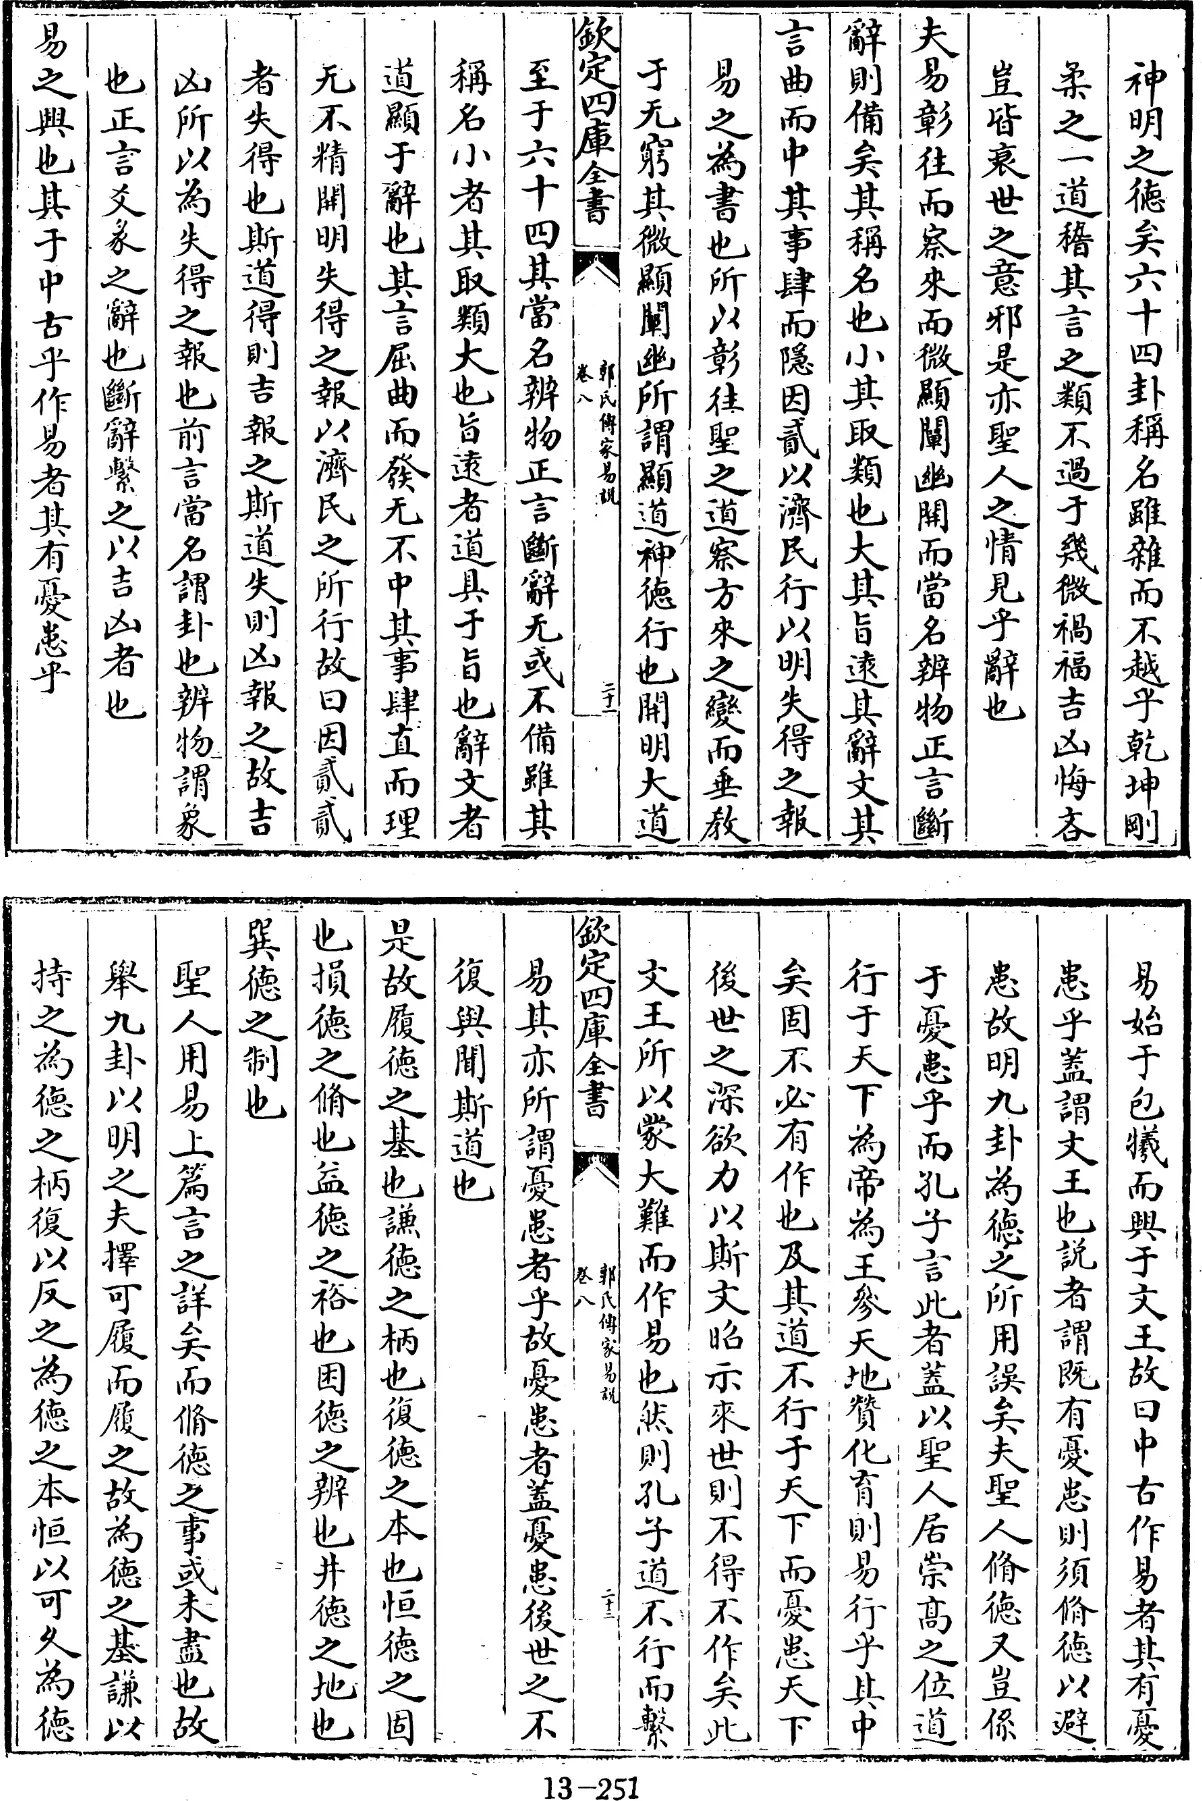 神明之德矣六十四卦稱名雖雜而不越乎乾坤剛
柔之一道稽其言之類不過于幾微禍福吉凶悔吝
豈皆衰世之意邪是亦聖人之情見乎辭也
夫易彰往而察來而微顯闡幽開而當名辨物正言斷
辭則備矣其稱名也小其取類也大其旨遠其辭文其
言曲而中其事肆而隱因貳以濟民行以明失得之報
易之為書也所以彰往聖之道察方來之變而垂教
于无窮其微顯闡幽所謂顯道神德行也開明大道
欽定四庫全書
郭氏傳家易說
卷八
二十一
至于六十四其當名辨物正言斷辭无或不備雖其
稱名小者其取類大也旨遠者道具于旨也辭文者
道顯于辭也其言屈曲而發无不中其事肆直而理
无不精開明失得之報以濟民之所行故曰因貳貳
者失得也斯道得則吉報之斯道失則凶報之故吉
凶所以為失得之報也前言當名謂卦也辨物謂象
也正言爻彖之辭也斷辭繫之以吉凶者也
易之興也其于中古乎作易者其有憂患乎
易始于包犧而興于文王故曰中古作易者其有憂
患乎蓋謂文王也説者謂既有憂患則須脩德以避
患故明九卦為德之所用誤矣夫聖人脩德又豈係
于憂患乎而孔子言此者蓋以聖人居崇高之位道
行于天下為帝為王參天地贊化育則易行乎其中
矣固不必有作也及其道不行于天下而憂患天下
後世之深欲力以斯文昭示來世則不得不作矣此
文王所以蒙大難而作易也然則孔子道不行而繫
欽定四庫全書
郭氏傳家易説
卷八
二十二
易其亦所謂憂患者乎故憂患者蓋憂患後世之不
復與聞斯道也
是故履德之基也謙德之柄也復德之本也恒德之固
也損德之脩也益德之裕也困德之辨也井德之地也
巽德之制也
聖人用易上篇言之詳矣而脩德之事或未盡也故
舉九卦以明之夫擇可履而履之故為德之基謙以
持之為德之柄復以反之為德之本恒以可久為德
13-251